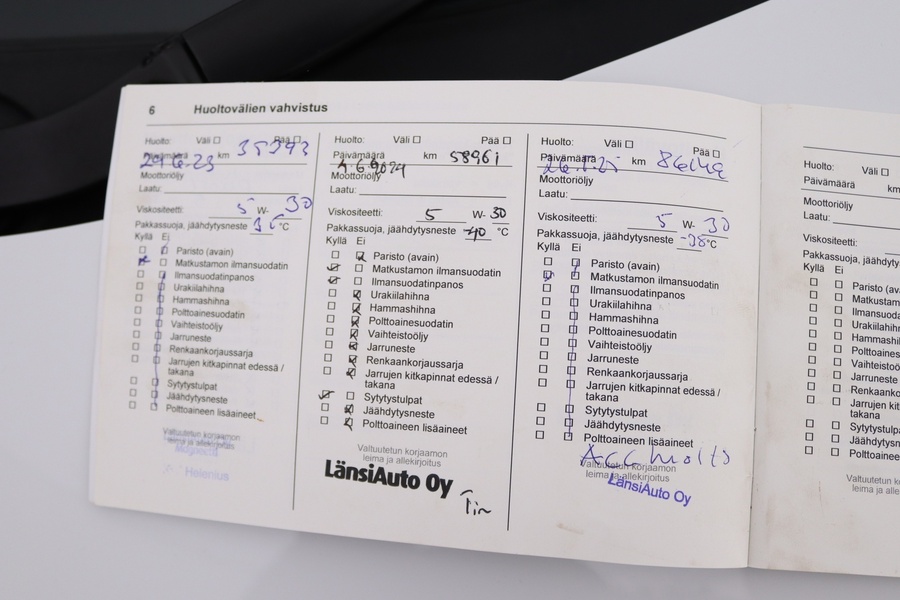 6 Huoltovälien vahvistus
Huolto: Väli Pää
Päivämäärä km 35393
Moottoriöljy
Laatu:
Viskositeetti: 5 W- 30
Pakkassuoja, jäähdytysneste °C
Kyllä Ei
Paristo (avain)
Matkustamon ilmansuodatin
Ilmansuodatinpanos
Urakiilahihna
Hammashihna
Polttoainesuodatin
Vaihteistoöljy
Jarruneste
Renkaankorjaussarja
Jarrujen kitkapinnat edessä /
takana
Sytytystulpat
Jäähdytysneste
Polttoaineen lisäaineet
Valtuutetun korjaamon
leima ja allekirjoitus
Helenius
Huolto: Väli Pää
Päivämäärä km 58961
4.6.2024
Moottoriöljy
Laatu:
Viskositeetti: 5 W- 30
Pakkassuoja, jäähdytysneste -40 °C
Kyllä Ei
Paristo (avain)
Matkustamon ilmansuodatin
Ilmansuodatinpanos
Urakiilahihna
Hammashihna
Polttoainesuodatin
Vaihteistoöljy
Jarruneste
Renkaankorjaussarja
Jarrujen kitkapinnat edessä /
takana
Sytytystulpat
Jäähdytysneste
Polttoaineen lisäaineet
Valtuutetun korjaamon
leima ja allekirjoitus
LänsiAuto Oy
Huolto: Väli Pää
Päivämäärä km
Moottoriöljy
Laatu:
Viskositeetti: 5 W- 30
Pakkassuoja, jäähdytysneste -38 °C
Kyllä Ei
Paristo (avain)
Matkustamon ilmansuodatin
Ilmansuodatinpanos
Urakiilahihna
Hammashihna
Polttoainesuodatin
Vaihteistoöljy
Jarruneste
Renkaankorjaussarja
Jarrujen kitkapinnat edessä /
takana
Sytytystulpat
Jäähdytysneste
Polttoaineen lisäaineet
ACC huolto
Valtuutetun korjaamon
leima ja allekirjoitus
LänsiAuto Oy
Huolto:
Päivämäärä km
Moottoriöljy
Laatu:
Viskositeetti:
Pakkassuoja, jäähdyty
Kyllä Ei
Paristo (ava
Matkustam
Ilmansuoda
Urakiilahihn
Hammashi
Polttoaines
Vaihteistoö
Jarruneste
Renkaanko
Jarrujen kit
takana
Sytytystulp
Jäähdytysn
Polttoainee
Valtuutetun
leima ja alle